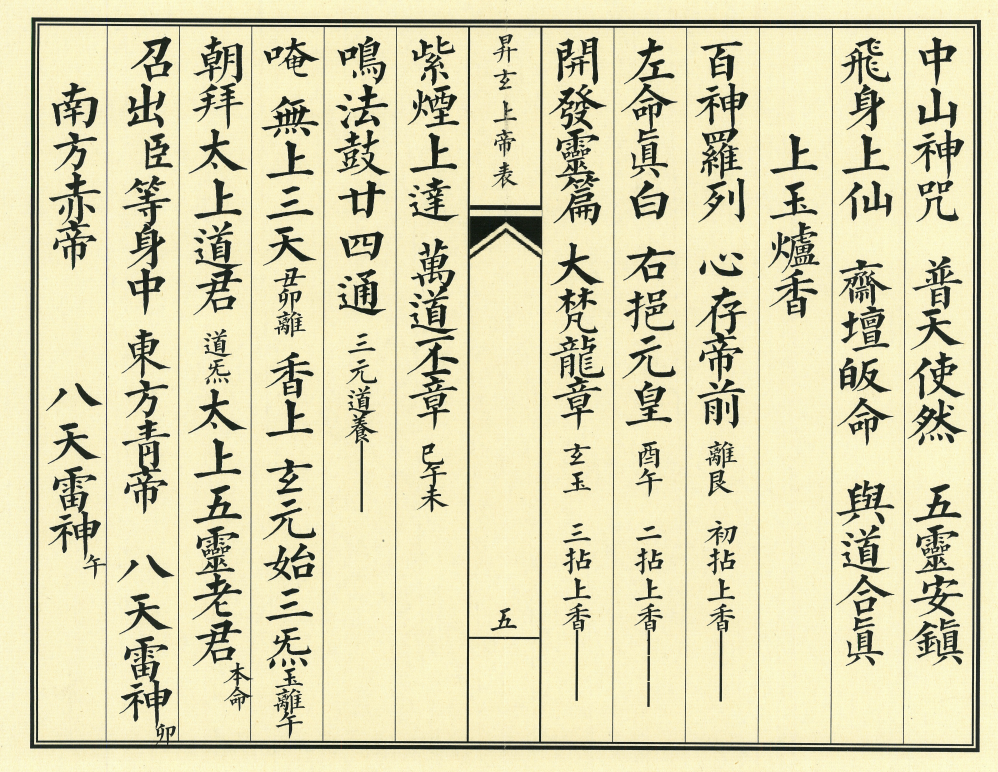 中山神咒　普天使然　五靈安鎮
飛身上仙　齋壇皈命　與道合眞
上玉爐香
百神羅列　心存帝前　離艮　初拈上香
左命眞白　右挹元皇　酉午　二拈上香
開發靈篇　大梵龍章　玄玉　三拈上香
昇玄上帝表　五
紫煙上達　萬道丕章　巳午未
鳴法鼓廿四通　三元道養
唵　無上三天　丑卯離　香上　玄元始三炁　玉離午
朝拜太上道君　道炁　太上五靈老君　本命
召出臣等身中　東方青帝　八天雷神　卯
南方赤帝　八天雷神　午